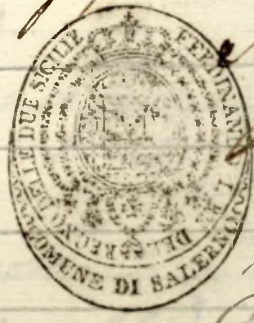 FERDINAN. I. RE
DEL REGN. DELLE DUE SICILIE
COMUNE DI SALERNO